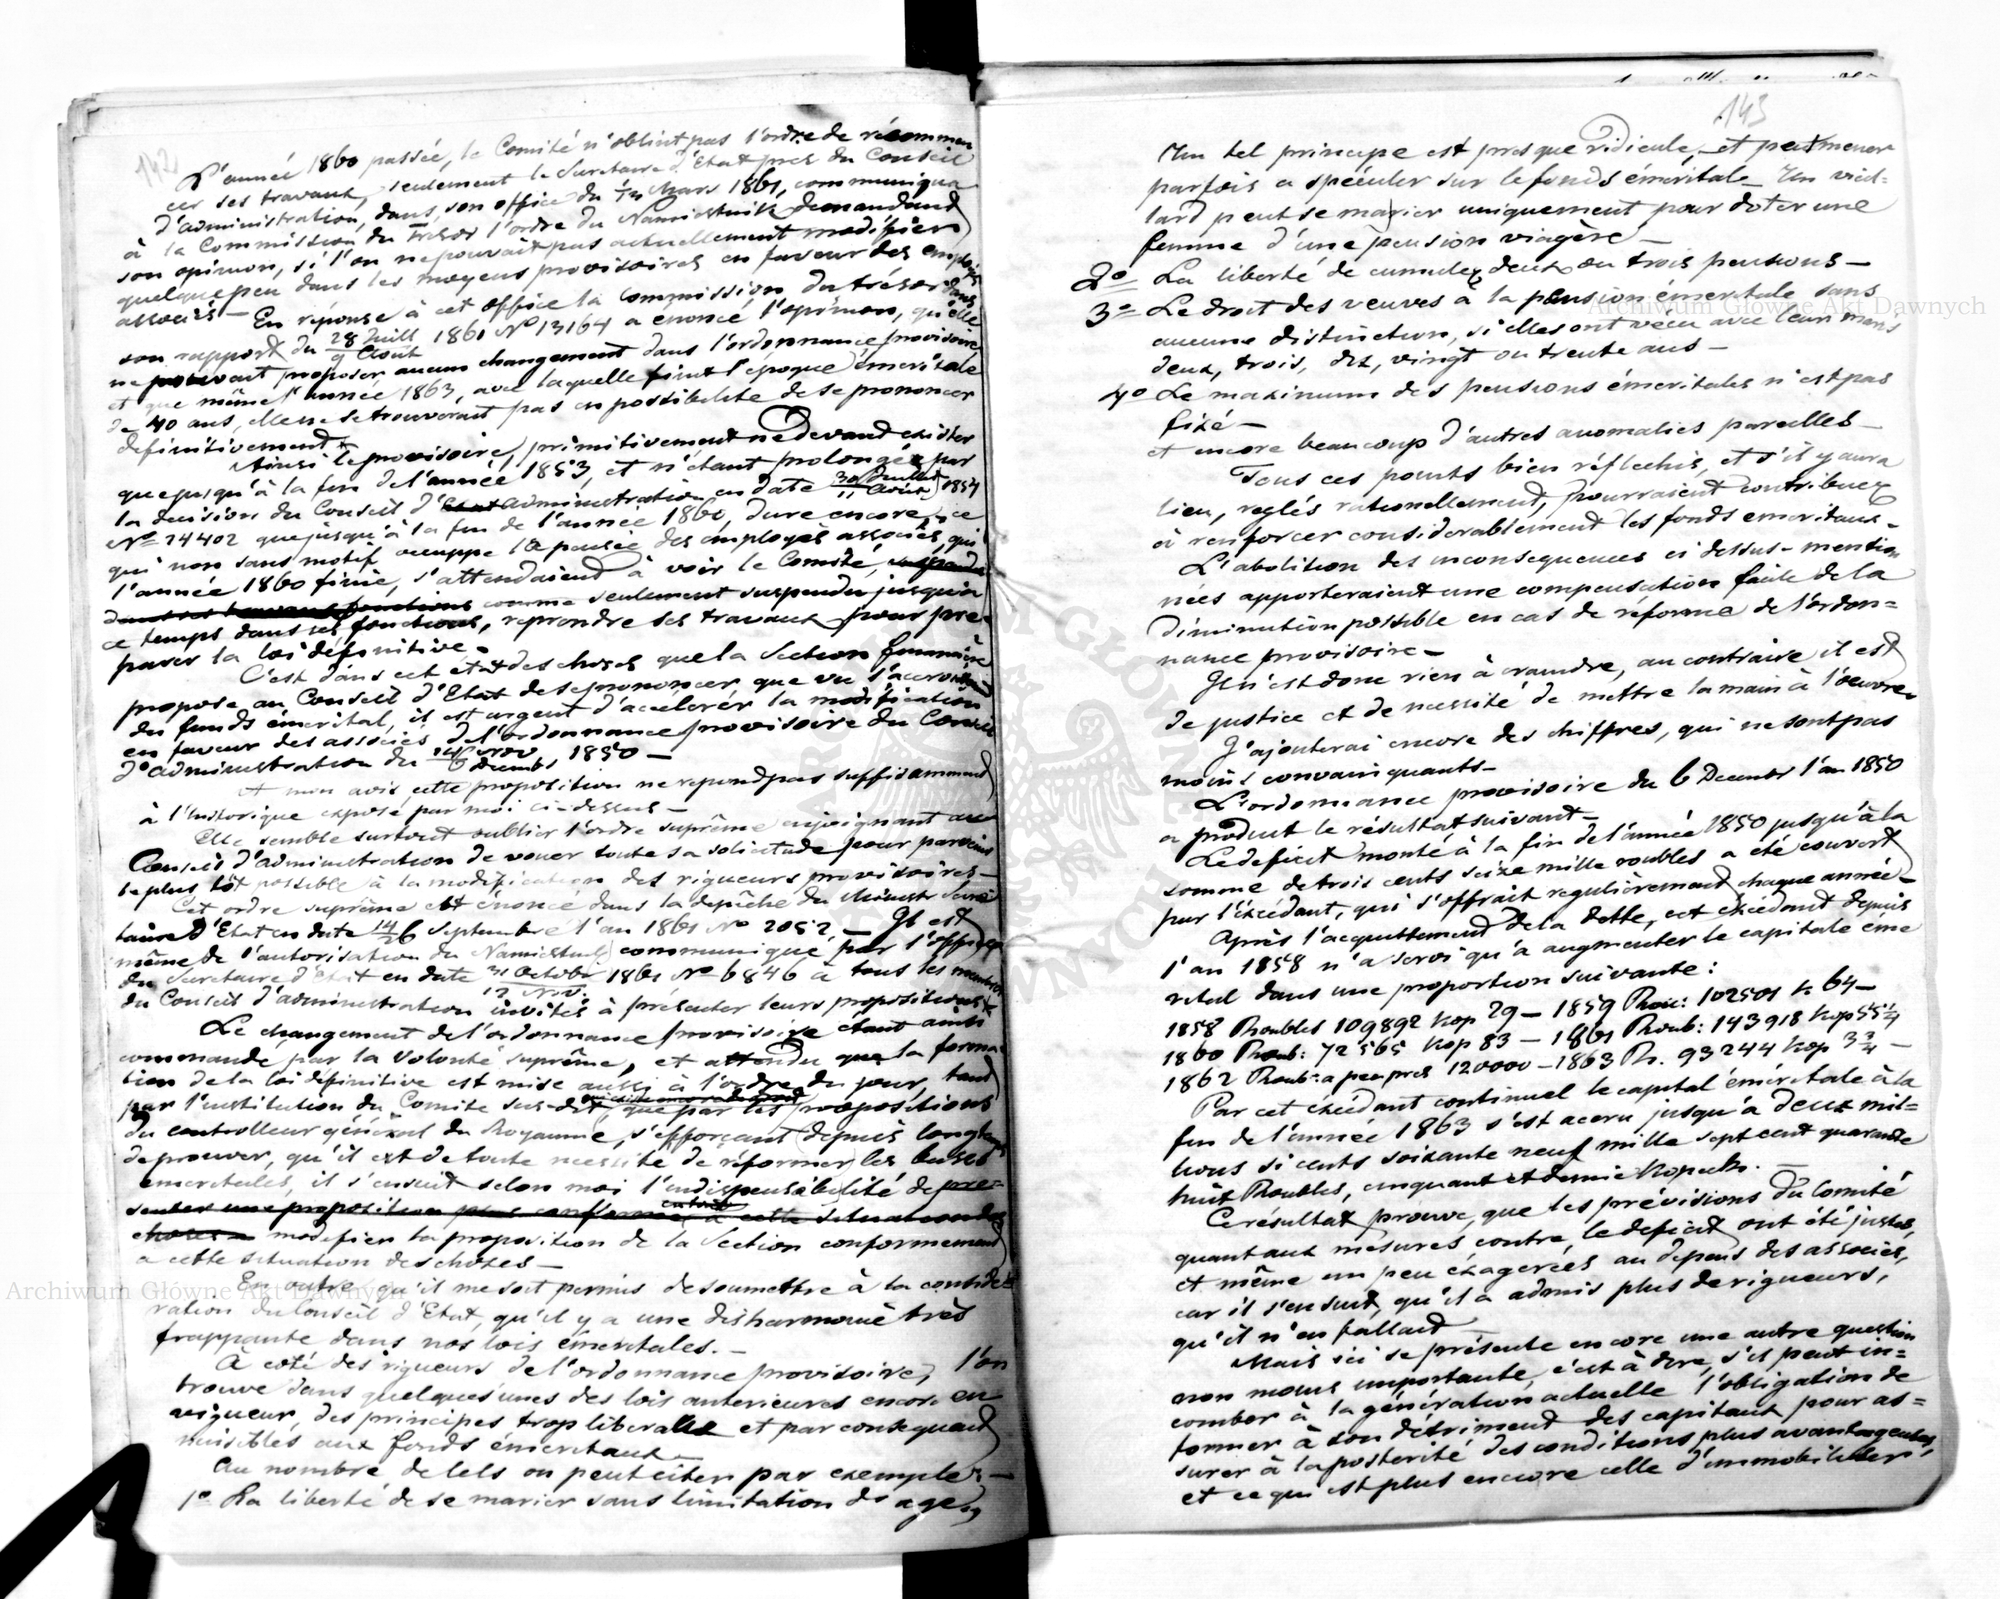 142
L'année 1860 passée, le Comité n'obtint pas l'ordre de recommen
cer ses travaux, seulement le Secretaire d'Etat pres du Conseil
d'administration, dans son office du Mars 1861, communiqua
à la Commission du Trésor l'ordre du Namiestnik demandant
son opinion, si l'on ne pouvait pas actuellement modifier
quelque peu dans les moyens provisoires en faveur des employés
associés — En réponse à cet office la Commission du trésor dans
son rapport du 28 Juill / 9 Août 1861 Nº 13164 a énoncé l'opinion, qu'elle
ne pouvait proposer aucun changement dans l'ordonnance provisoire
et que même l'année 1863, avec laquelle finit l'époque émeritale
de 40 ans, elle ne se trouverait pas en possibilité de se prononcer
definitivement.
Ainsi le provisoire, primitivement ne devant exister
que jusqu'à la fin de l'année 1853, et n'étant prolongée par
la decision du Conseil d'Etat administration en date 30 Juillet / 11 Août 1854
Nº 24402 que jusqu'à la fin de l'année 1860, dure encore, ce
qui non sans motif occuppe la pensée des employés associés, qui
l'année 1860 finie, s'attendaient à voir le Comité,
dans ses travaux fonctions comme seulement suspendu jusqu'à
ce temps dans ses fonctions, reprendre ses travaux pour pre-
parer la loi définitive.
C'est dans cet état des choses que la Section financière
propose au Conseil d'Etat de se prononcer, que vu l'accroissement
du fonds émerital, il est urgent d'accelerer la modification
en faveur des associés de l'ordonnance provisoire du Conseil
d'administration du 24 Nov / 6 Decembr 1850 —
A mon avis cette proposition ne repond pas suffisamment
à l'historique exposé par moi ci-dessus —
Elle semble surtout oublier l'ordre suprême enjoignant au
Conseil d'administration de vouer toute sa solicitude pour parvenir
le plus tôt possible à la modification des rigueurs provisoires —
Cet ordre suprême est énoncé dans la depêche du Ministre Secré
taire d'Etat en date 14/26 Septembre l'an 1861 Nº 2052 — Il est
même de l'autorisation du Namiestnik communiqué par l'office
du Secretaire d'Etat en date 31 Octobr / 12 Nov. 1861 Nº 6846 à tous les membres
du Conseil d'administration invités à présenter leurs propositions.
Le changement de l'ordonnance provisoire étant ainsi
commandé par la Volonté suprême, et attendu que la forma-
tion de la loi définitive est mise aussi à l'ordre du jour, tant
par l'institution du Comité sus-dit, que par les propositions
du controlleur général du Royaume, s'efforçant depuis longtemps
de prouver, qu'il est de toute necessité de réformer les bases
emeritales, il s'ensuit selon moi l'indispensabilité de pre-
senter une proposition plus conforme à cette situation des
choses — modifier la proposition de la Section conformement
a cette situation des choses —
En outre qu'il me soit permis de soumettre à la conside
ration du Conseil d'Etat, qu'il y a une disharmonie très
frappante dans nos lois émeritales. —
A coté des rigueurs de l'ordonnance provisoire, l'on
trouve dans quelques unes des lois anterieures encore en
vigueur, des principes trop liberals et par consequent
nuisibles aux fonds émeritaux —
Au nombre de tels on peut citer par exemple: —
1º La liberté de se marier sans limitation de age,
143
Un tel principe est presque ridicule, et peut mener
parfois a spéculer sur le fonds émeritale — Un vieil-
lard peut se marier uniquement pour doter une
femme d'une pension viagère —
2º La liberté de cumuler deux ou trois pensions —
3º Le droit des veuves à la pension émeritale sans
aucune distinction, si elles ont vécu avec leur maris
deux, trois, dix, vingt ou trente ans —
4º Le maximum des pensions émeritales n'est pas
fixé —
et encore beaucoup d'autres anomalies pareilles —
Tous ces points bien réflechis, et s'il y aura
lieu, reglés rationellement, pourraient contribuer
à renforcer considerablement les fonds emeritaux —
L'abolition des inconsequences ci dessus-mention
nées apporteraient une compensation facile de la
diminution possible en cas de reforme de l'ordon=
nance provisoire —
Il n'est donc rien à craindre, au contraire il est
de justice et de necessité de mettre la main à l'oeuvre
J'ajouterai encore des chiffres, qui ne sont pas
moins convainquants —
L'ordonnance provisoire du 6 Decembr l'an 1850
a produit le résultat suivant —
Le deficit monté à la fin de l'année 1850 jusqu'à la
somme de trois cents seize mille roubles a été couvert
par l'éxcédant, qui s'offrait regulièrement chaque année —
Après l'acquittement de la dette, cet éxcédant depuis
l'an 1858 n'a servi qu'à augmenter le capitale éme
rital dans une proportion suivante:
1858 Roubles 109892 Kop 29 — 1859 Rou: 102501 k. 64 —
1860 Roub: 72565 Kop 83 — 1861 Roub: 143918 Kop 55 1/4
1862 Roub: a peu pres 120000 — 1863 R. 93244 Kop 3 3/4 —
Par cet éxcédant continuel le capital émeritale à la
fin de l'année 1863 s'est accru jusqu'a deux mil=
lions si cents soixante neuf mille sept cent quarante
huit Roubles, cinquant et demie Kopeck. —
Ce résultat prouve, que les prévisions du Comité
quant aux mesures contre le deficit ont été justes,
et même un peu éxagerées au depens des associés,
car il s'ensuit, qu'il a admis plus de rigueurs,
qu'il n'en fallait —
Mais ici se présente encore une autre question
non moins importante, c'est à dire, s'il peut in=
comber à la génération actuelle l'obligation de
former à son détriment des capitaux pour as=
surer à la posterité des conditions plus avantageuses,
et ce qui est plus encore celle d'immobiliser,
Archiwum Główne Akt Dawnych
Archiwum Główne Akt Dawnych